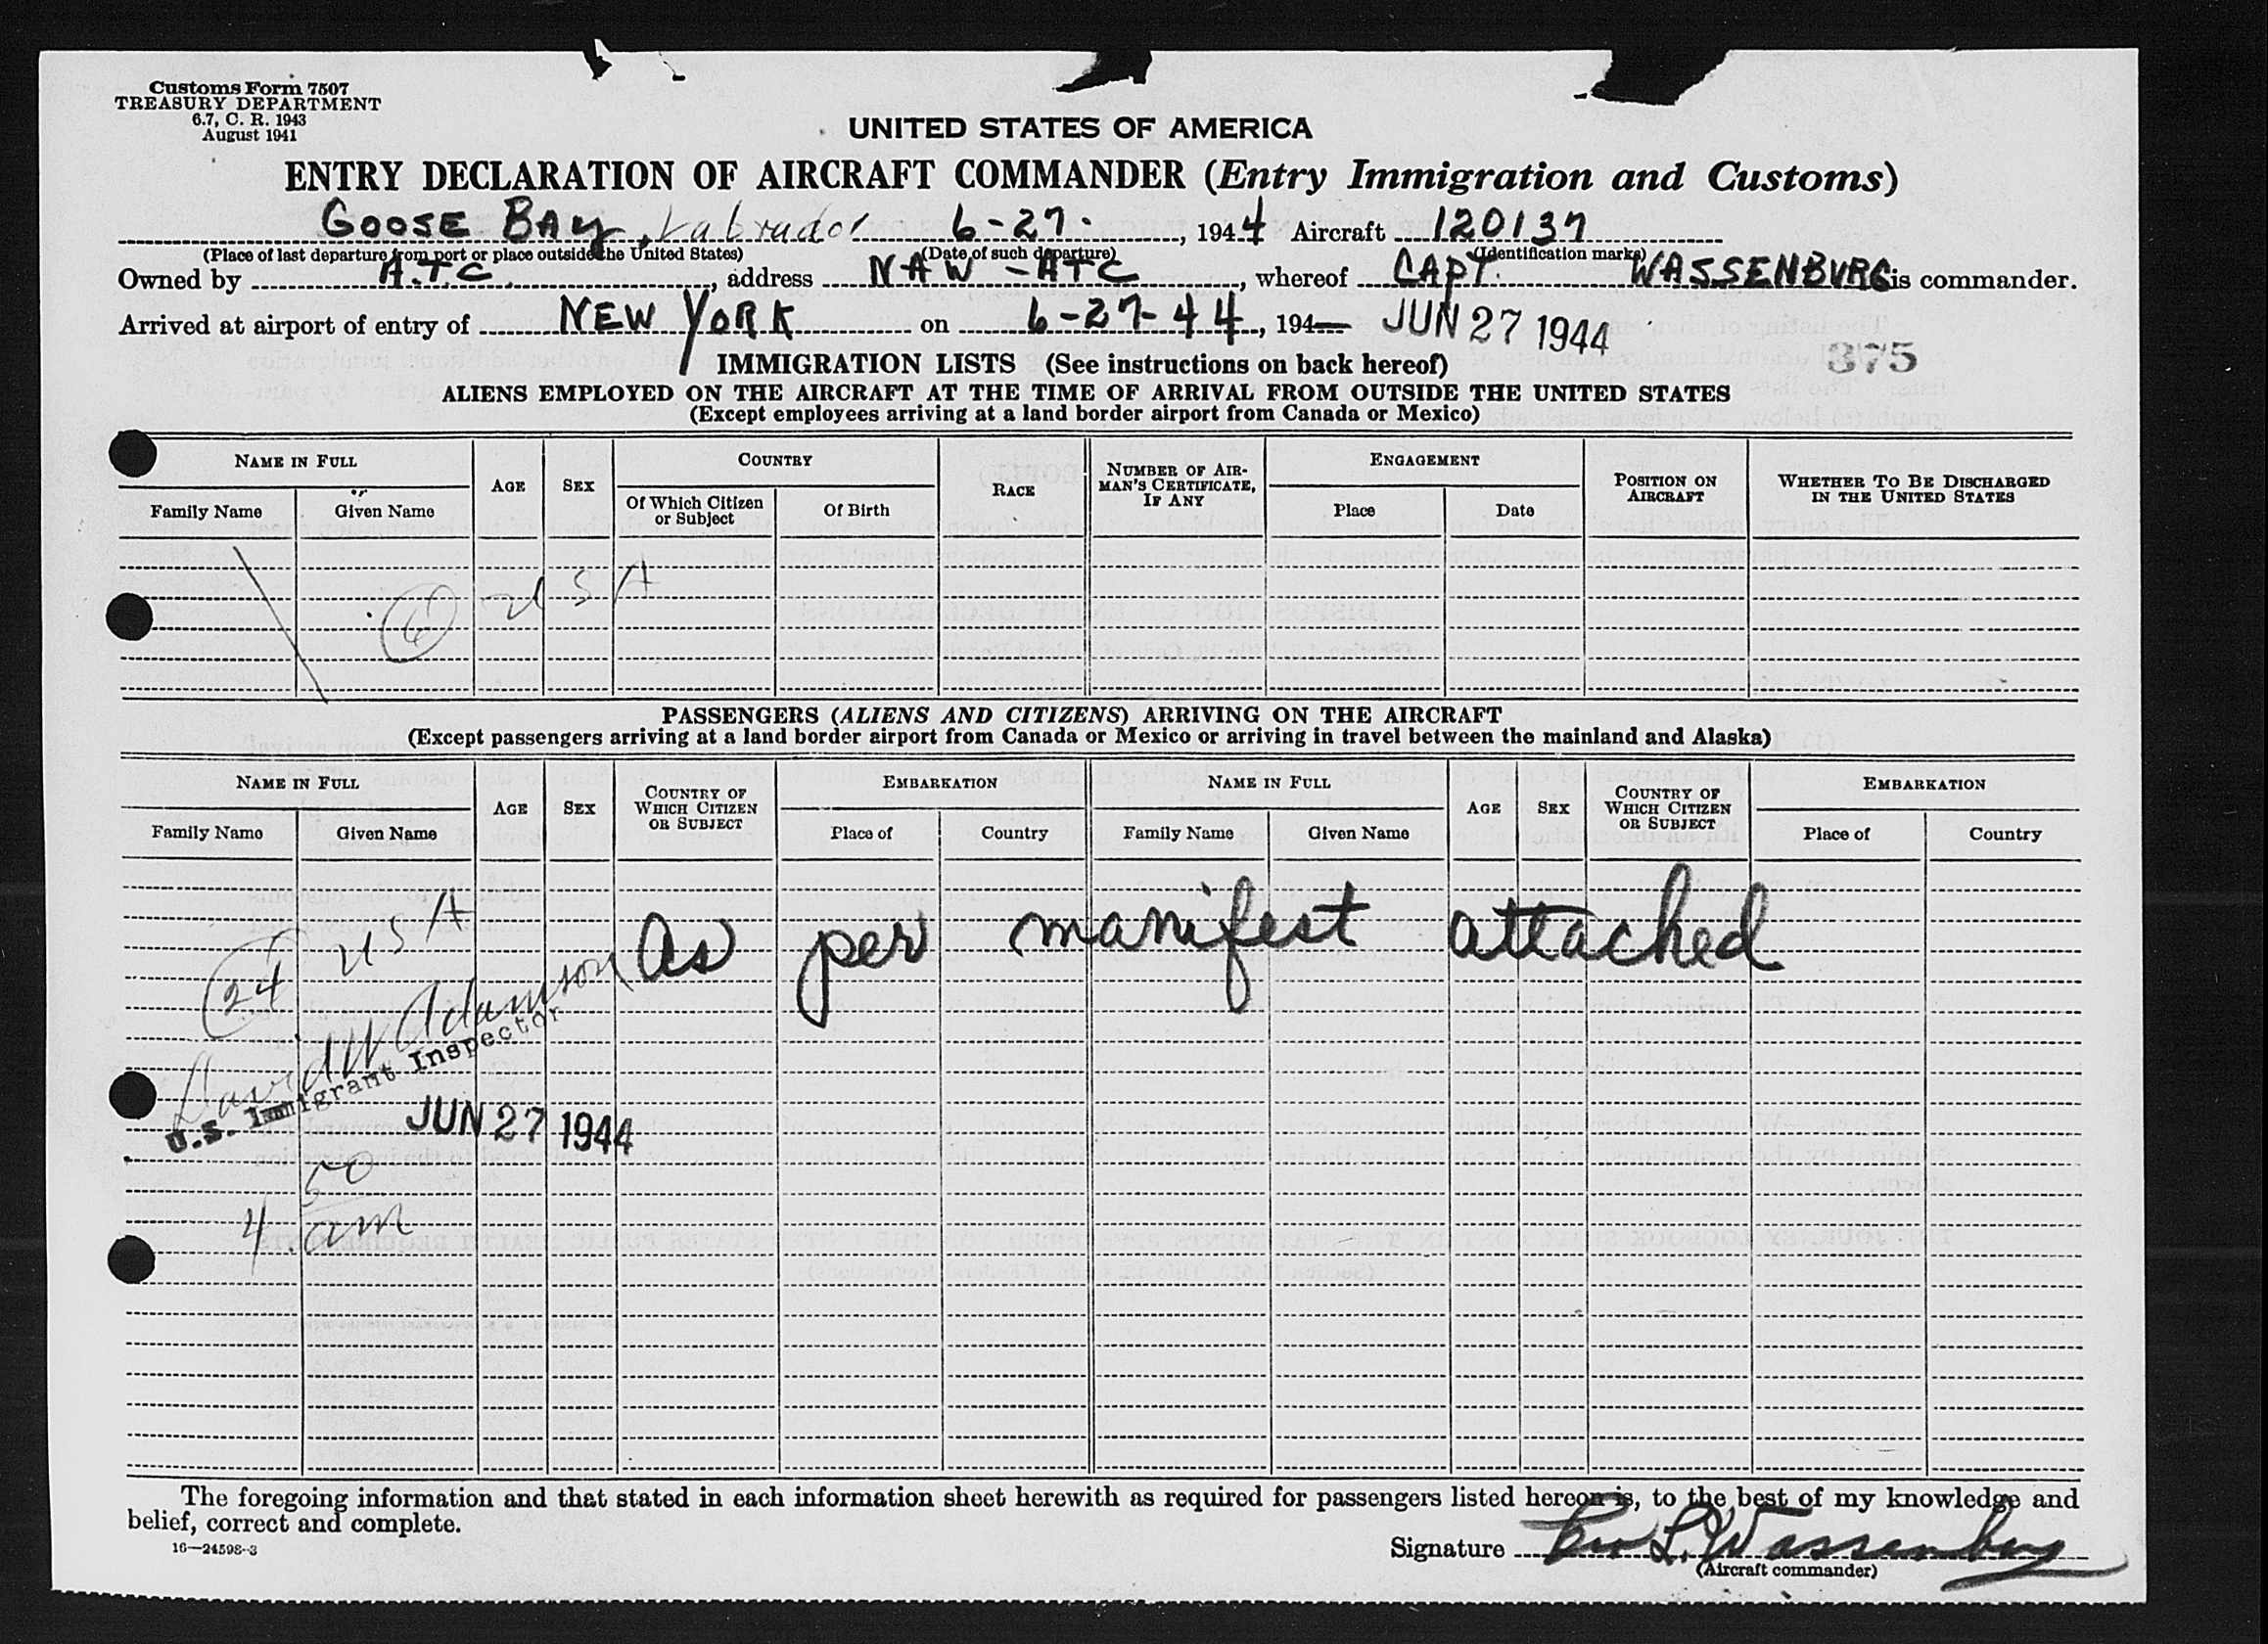 Customs Form 7507
TREASURY DEPARTMENT
6.7, C. R. 1943
August 1941
UNITED STATES OF AMERICA
ENTRY DECLARATION OF AIRCRAFT COMMANDER (Entry Immigration and Customs)
GOOSE BAY, Labrador 6-27-, 1944 Aircraft 120137
(Place of last departure from port or place outside the United States) (Date of such departure) (Identification marks)
Owned by A.T.C., address NAW-ATC, whereof CAPT. WASSENBURG is commander.
Arrived at airport of entry of NEW YORK on 6-27-44, 194 JUN 27 1944
375
IMMIGRATION LISTS (See instructions on back hereof)
ALIENS EMPLOYED ON THE AIRCRAFT AT THE TIME OF ARRIVAL FROM OUTSIDE THE UNITED STATES
(Except employees arriving at a land border airport from Canada or Mexico)
NAME IN FULL AGE SEX COUNTRY RACE NUMBER OF AIRMAN'S CERTIFICATE, IF ANY ENGAGEMENT POSITION ON AIRCRAFT WHETHER TO BE DISCHARGED IN THE UNITED STATES
Family Name Given Name Of Which Citizen or Subject Of Birth Place Date
6 USA
PASSENGERS (ALIENS AND CITIZENS) ARRIVING ON THE AIRCRAFT
(Except passengers arriving at a land border airport from Canada or Mexico or arriving in travel between the mainland and Alaska)
NAME IN FULL AGE SEX COUNTRY OF WHICH CITIZEN OR SUBJECT EMBARKATION NAME IN FULL AGE SEX COUNTRY OF WHICH CITIZEN OR SUBJECT EMBARKATION
Family Name Given Name Place of Country Family Name Given Name Place of Country
24 USA
As per manifest attached
David W Adamson
U.S. Immigrant Inspector
JUN 27 1944
4 50 am
The foregoing information and that stated in each information sheet herewith as required for passengers listed hereon is, to the best of my knowledge and
belief, correct and complete.
16—24598-3
Signature L. Wassenberg
(Aircraft commander)